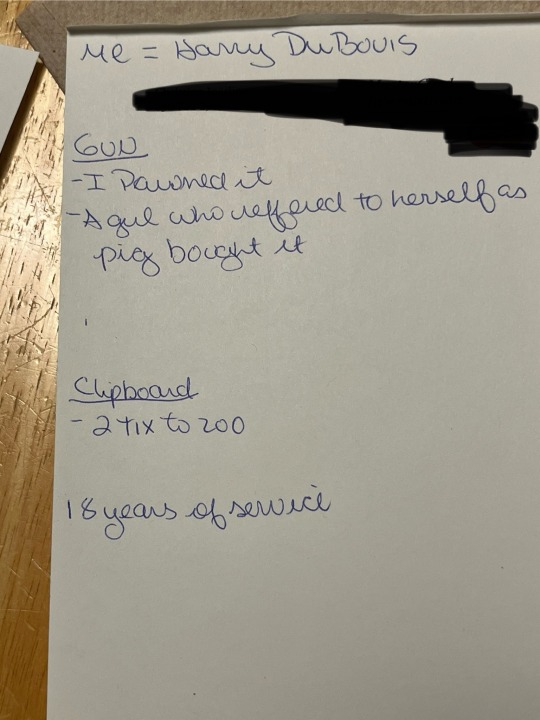 Me = Harry DuBouis
GUN
- I Pawned it
- A gul who reffered to herself as
pig bought it
Clipboard
- 2 tix to zoo
18 years of service